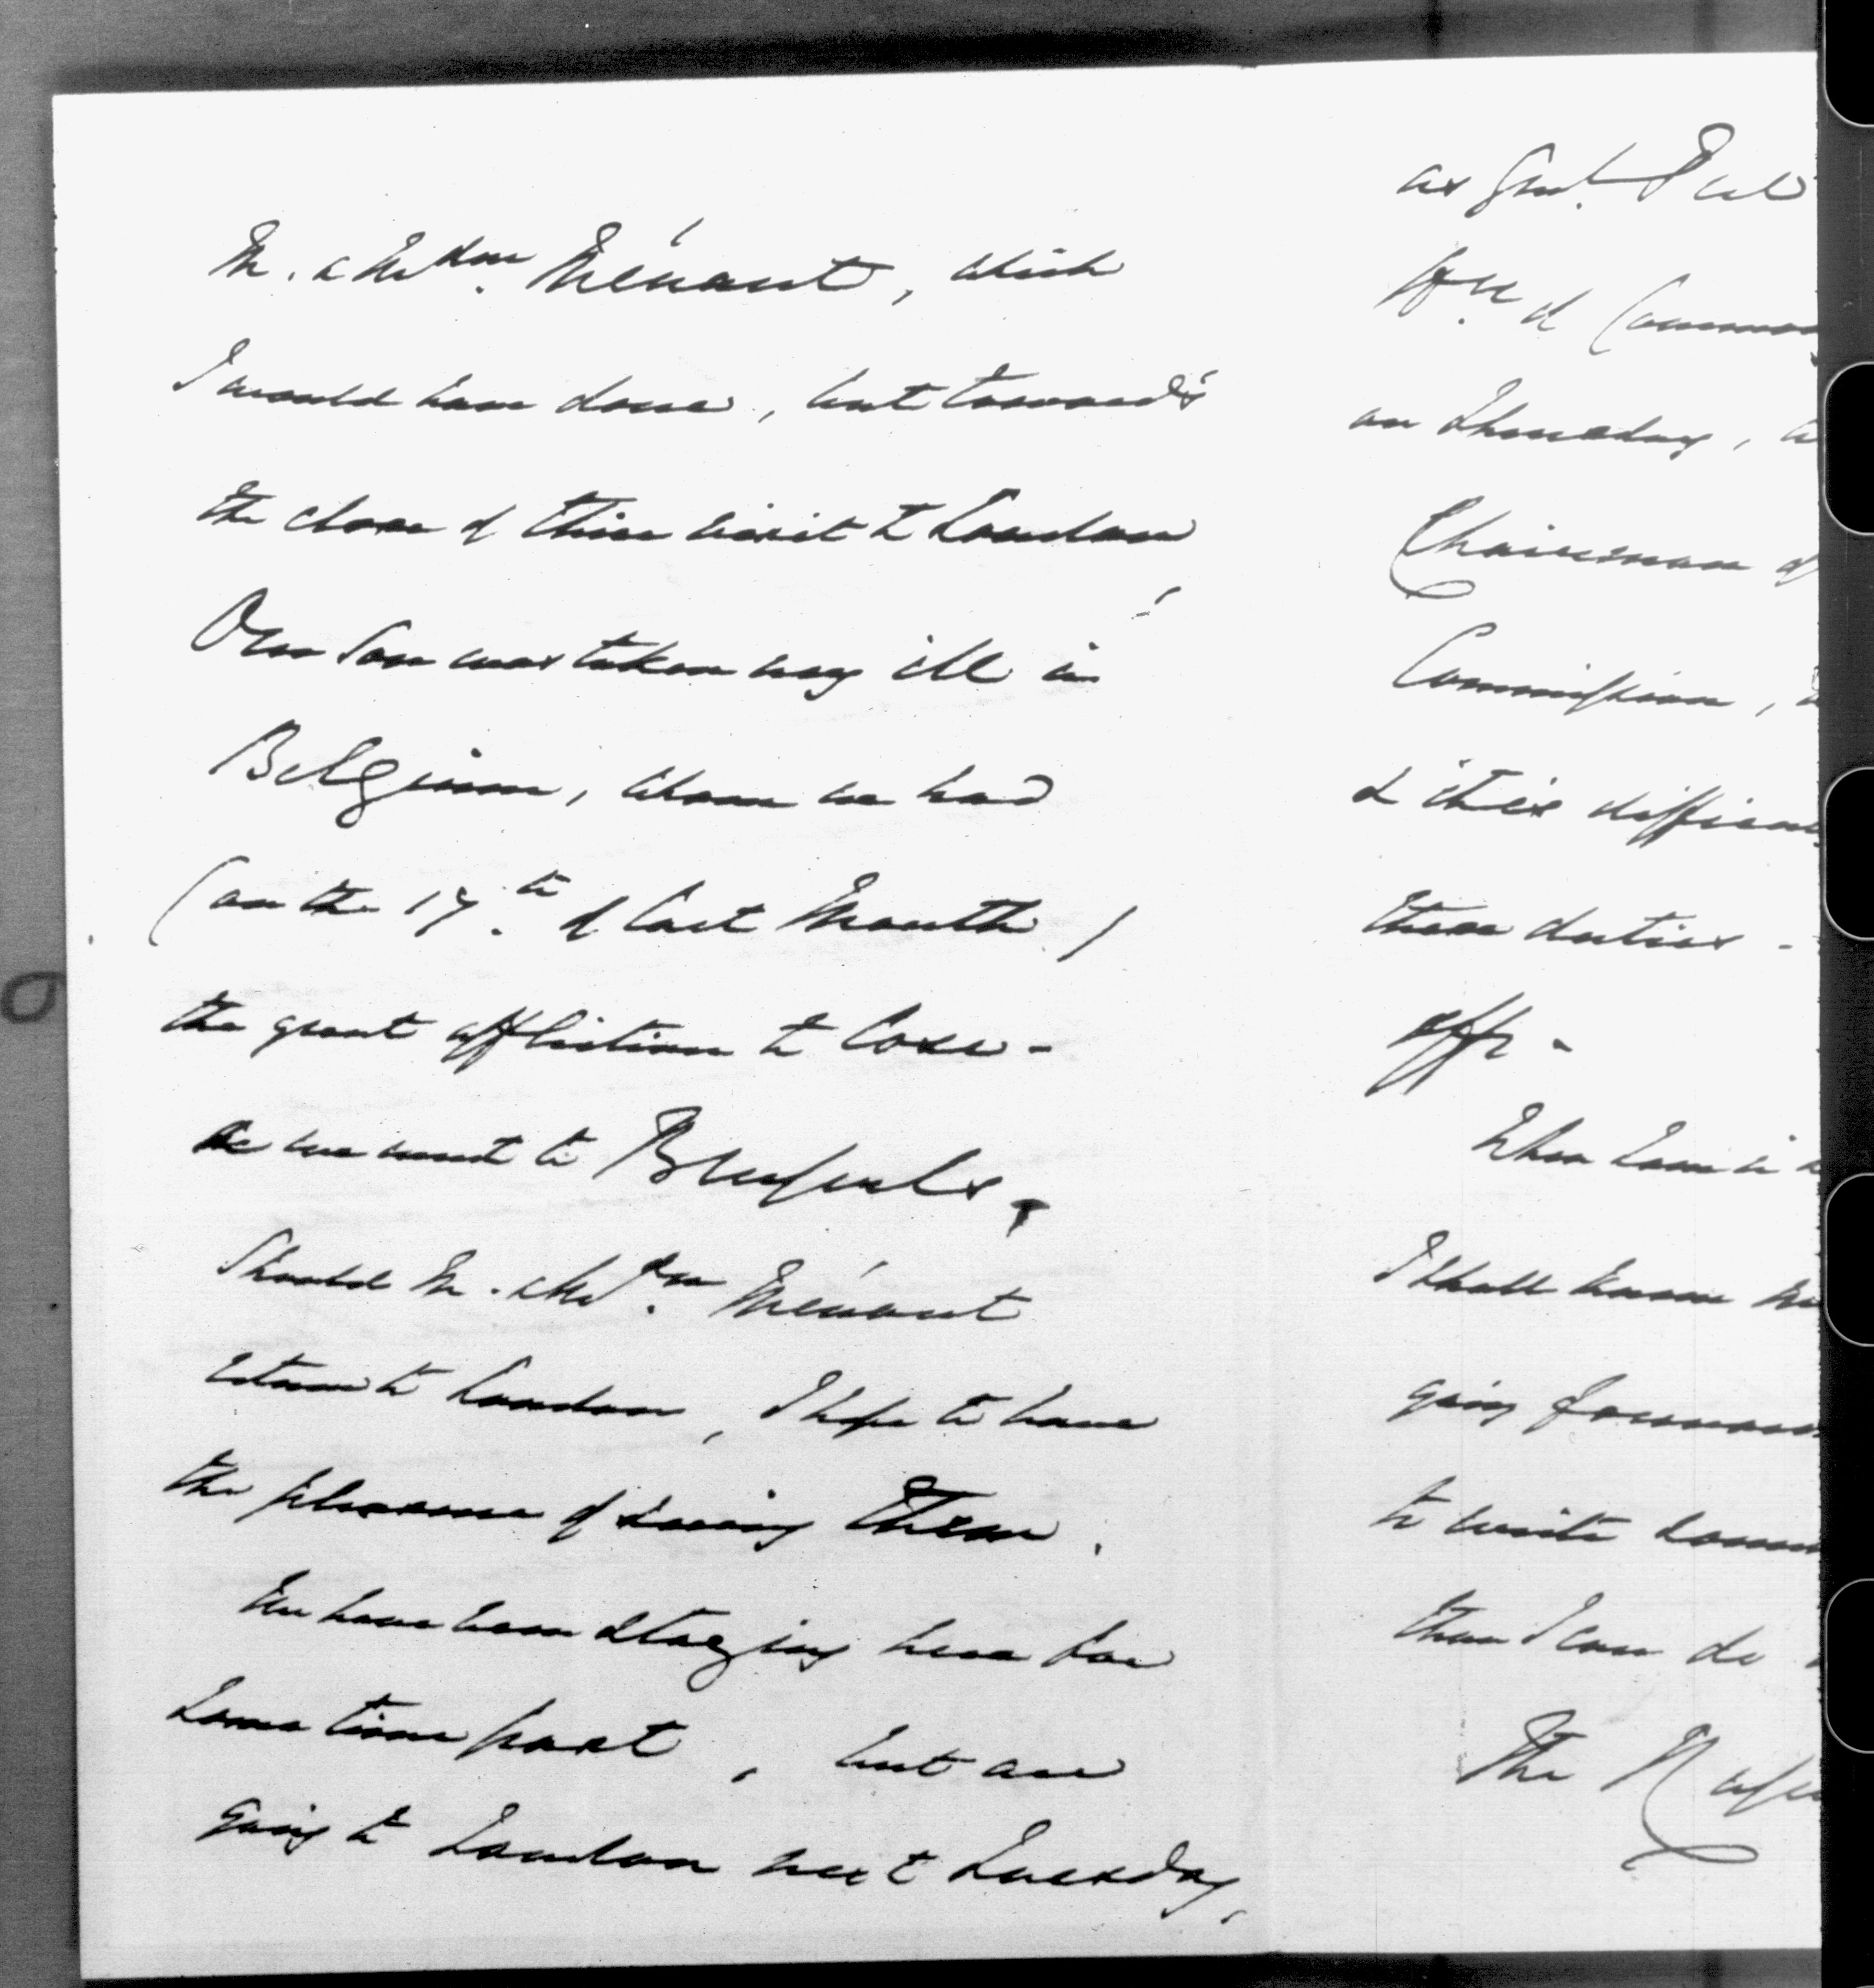 M. & Mdm. Ménant, which
I would have done, but towards
the close of their visit to London
Our Son was taken very ill in
Belgium, whom we had
(on the 17th of last Month)
the great affliction to lose -
we went to Brussels.
Should M. & Mdm Ménant
return to London, I hope to have
the pleasure of seeing them.
We have been staying here for
some time past, but are
going to London next Tuesday,
as
of Commons
on Thursday,
Chairman of
Commission,
& it is difficult
these duties -
off -
When I am in
I shall know
going forward
to write
than I can do
The